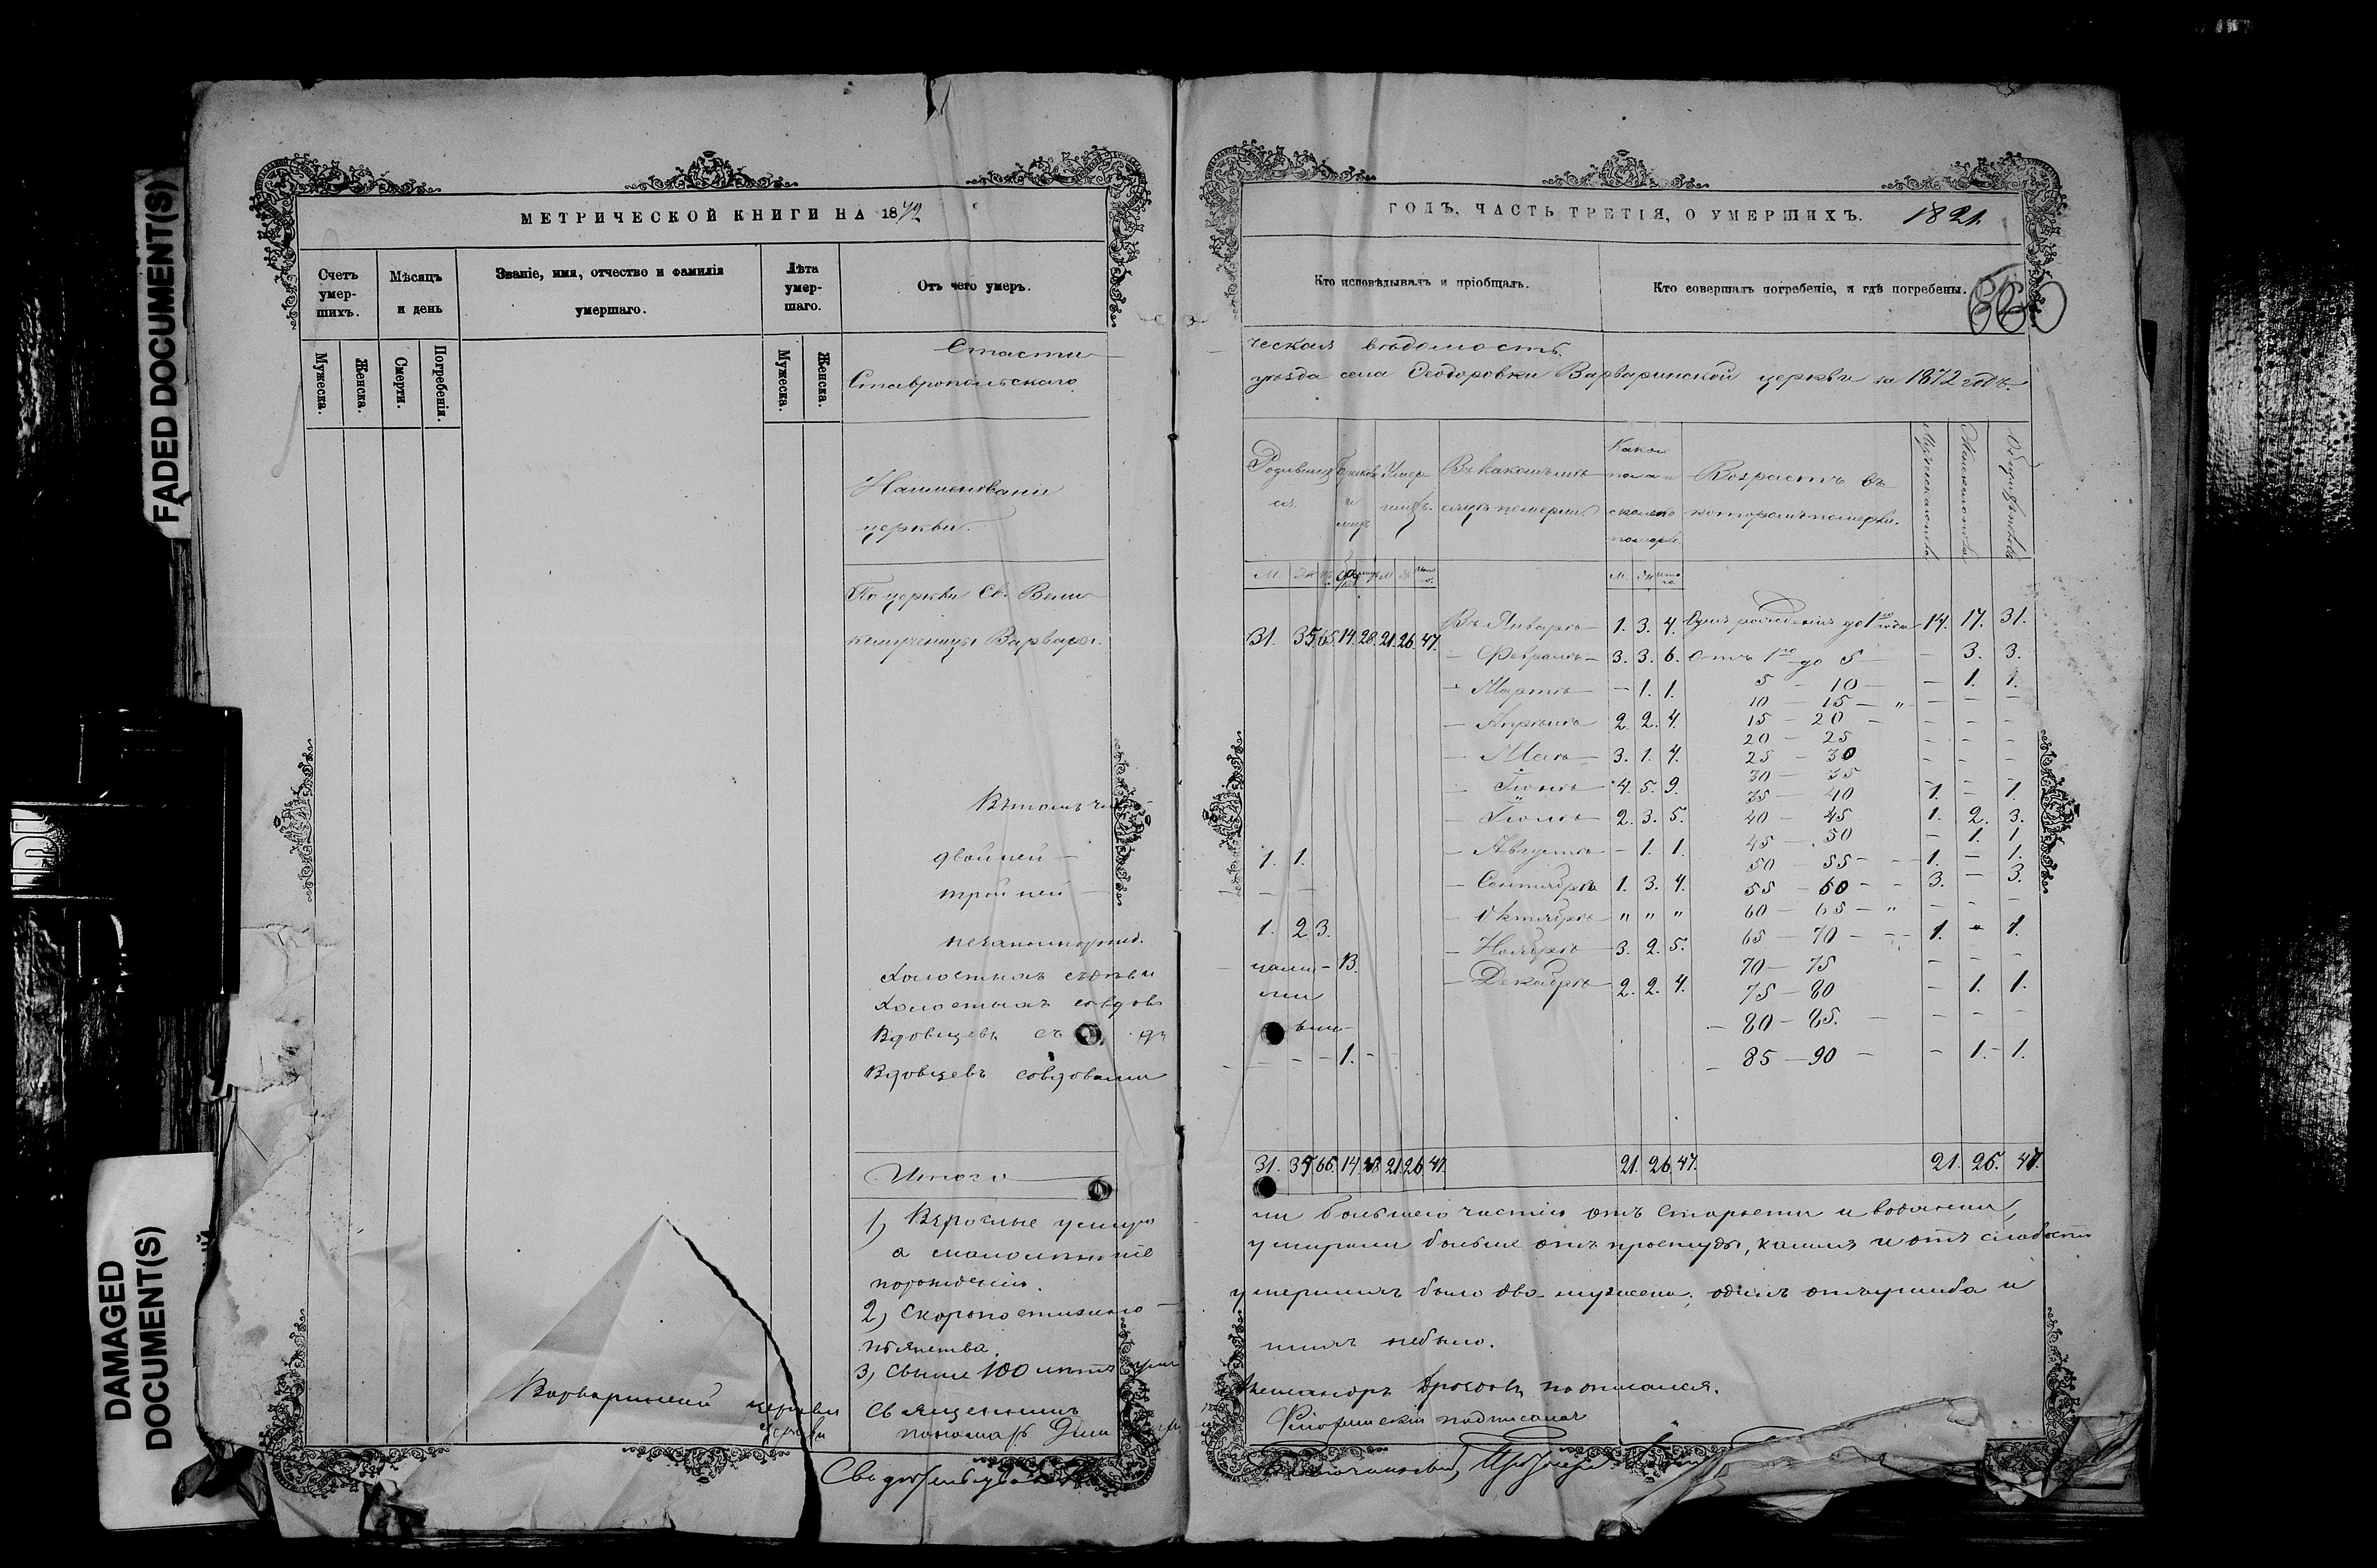 FADED DOCUMENT(S)
DAMAGED
DOCUMENT(S)
МЕТРИЧЕСКОЙ КНИГИ НА 1872
Счетъ умер-шихъ.
Мѣсяцъ и день
Званіе, имя, отчество и фамилія умершаго.
Лѣта умер-шаго.
Отъ чего умеръ.
Мужеска.
Женска.
Смерти.
Погребенія.
Мужеска.
Женска.
Статисти
Ставропольскаго
Наименованіе
церкви.
По церкви Св. Вели
комученицы Варвары.
Въ томъ числѣ
двойней
тройней
незаконнорожд.
Холостыхъ съ дѣви
Холостыхъ со вдов
Вдовцевъ съ дѣ
Вдовцевъ со вдовами
Итого
1) Взрослые умира
а малолѣтніе
порожденія.
2) Скоропостижно
пьянства.
3) Свыше 100 лѣтъ уме
Священникъ
пономарь Дим
Варваринской церкви
Церкви
ГОДЪ, ЧАСТЬ ТРЕТІЯ, О УМЕРШИХЪ. 1821.
Кто исповѣдывалъ и пріобщалъ.
Кто совершалъ погребеніе, и гдѣ погребены.
ческая вѣдомость.
уѣзда села Ѳеодоровки Варваринской церкви за 1872 годъ.
Родивших
ся.
Умер
шихъ.
Въ какомъ мѣ
сяцѣ померли
Какого
пола и
сколько
померло
Возрастъ въ
которомъ померли.
Мужескаго пола
Женскаго пола
Обоего пола
М. Ж. М. Ж. Ито го.
М. Ж. Ито го.
31. 35. 66. 14. 28. 21. 26. 47.
Въ Январѣ 1. 3. 4. Отъ рожденія до 1го года 14. 17. 31.
— Февралѣ — 3. 3. 6. Отъ 1го до 5 — 3. 3.
— Мартѣ — 1. 1. 5 — 10 — — 1. 1.
10 — 15 — „ — — —
— Апрѣлѣ 2. 2. 4. 15 — 20 — — — —
20 — 25 — — —
— Маѣ 3. 1. 4. 25 — 30 — — —
30 — 35 — — —
— Іюнѣ 4. 5. 9. 35 — 40 1. — 1.
— Іюлѣ 2. 3. 5. 40 — 45 1. 2. 3.
45 — 50 — 1. 1
1. 1. — Августѣ — 1. 1. 50 — 55 — 1. — 1.
— — — Сентябрѣ 1. 3. 4. 55 — 60 — 3. — 3.
— Октябрѣ „ „ „ 60 — 65 — „ — — —
1. 2. 3. 65 — 70 — 1. „ 1.
— Ноябрѣ 3. 2. 5. 70 — 75 — — —
цами — 13. — Декабрѣ 2. 2. 4. 75 — 80 — 1. 1.
ми
— 80 — 85. — — — —
— — — 1. — — 85 — 90 — — 1. — 1.
31. 35. 66. 14. 28. 21. 26. 47. 21. 26. 47. 21. 26. 47.
ли большею частію отъ старости и водянки,
умирали больше отъ простуды, кашля и отъ слабости
умершихъ было два мужчины; одинъ отъ ушиба и
шихъ небыло.
Александръ Дроздовъ подписался.
подписался